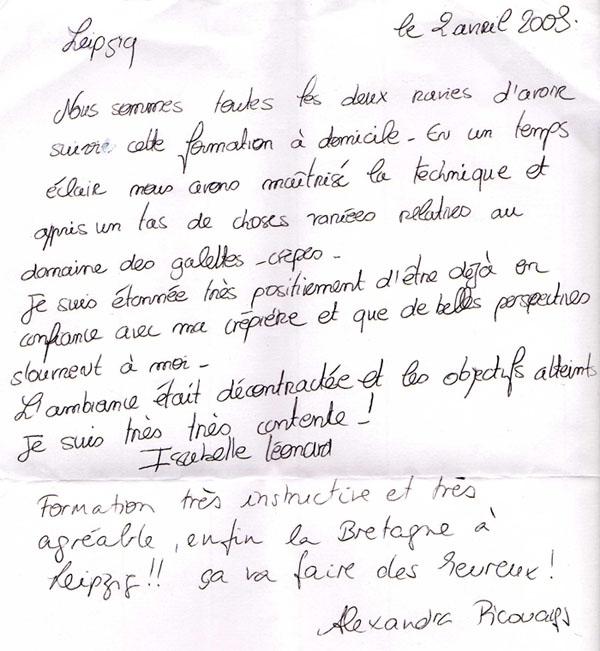 Leipzig
le 2 avril 2003.
Nous sommes toutes les deux ravies d'avoir
suivie cette formation à domicile - En un temps
éclair nous avons maîtrisé la technique et
appris un tas de choses variées relatives au
domaine des galettes - crêpes -
Je suis étonnée très positivement d'être déjà en
confiance avec ma crêpière et que de belles perspectives
s'ouvrent à moi -
L'ambiance était décontractée et les objectifs atteints
Je suis très très contente !
Isabelle Léonard
Formation très instructive et très
agréable, enfin la Bretagne à
Leipzig !! ça va faire des heureux !
Alexandra